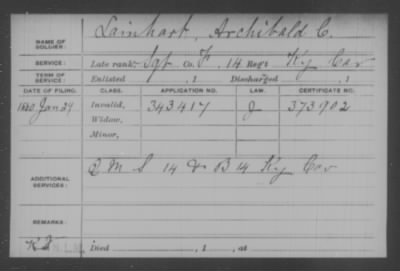 NAME OF SOLDIER: Lainhart, Archibald C.
SERVICE: Late rank Sgt Co. F, 14 Reg't Ky Cav
TERM OF SERVICE: Enlisted , 1 Discharged , 1
DATE OF FILING. CLASS. APPLICATION NO. LAW. CERTIFICATE NO.
1880 Jan 24 Invalid, 343417 J 373902
Widow,
Minor,
ADDITIONAL SERVICES: Q M S 14 & B 14 Ky Cav
REMARKS:
Died , 1 , at